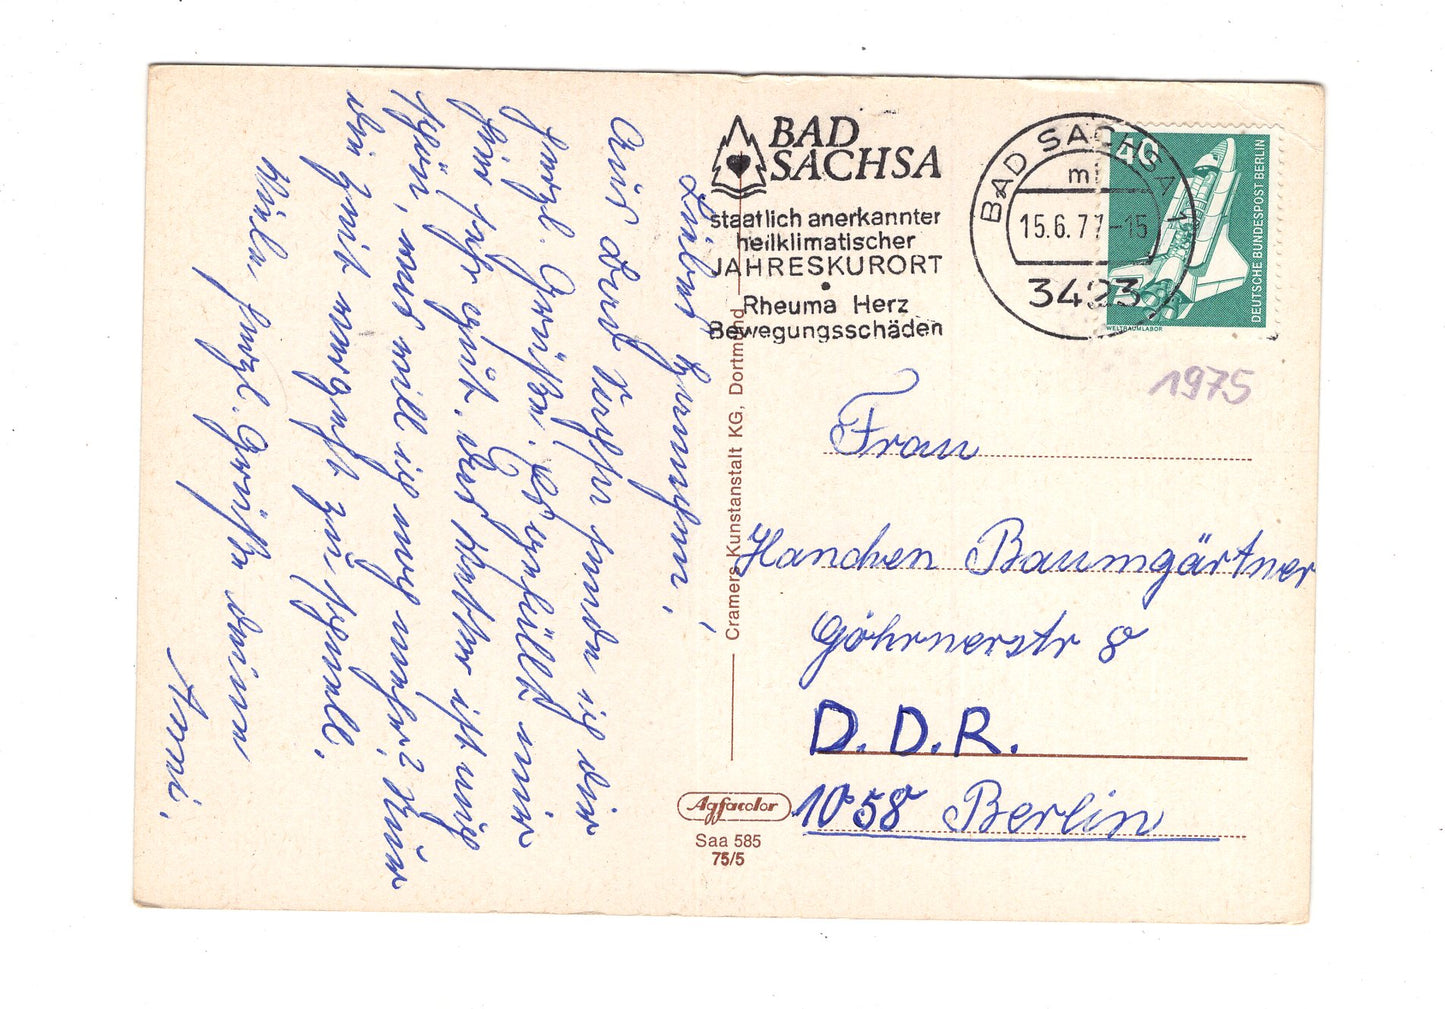 BAD
SACHSA
staatlich anerkannter
heilklimatischer
JAHRESKURORT
Rheuma Herz
Bewegungsschäden
BAD SACHSA 1
mi
15.6.77-15
3423
40
DEUTSCHE BUNDESPOST BERLIN
WELTRAUMLABOR
1975
Liebes Hannchen,
Aus Bad Sachsa sende ich dir
herzl. Grüße. Es gefällt mir
hier sehr gut. Das Wetter ist
schön, was will ich noch mehr? Nur
die Zeit vergeht zu schnell.
Viele herzl. Grüße deine
Anni.
Cramers Kunstanstalt KG, Dortmund
Frau
Hanchen Baumgärtner
Göhrnerstr 8
D.D.R.
1058 Berlin
Agfacolor
Saa 585
75/5